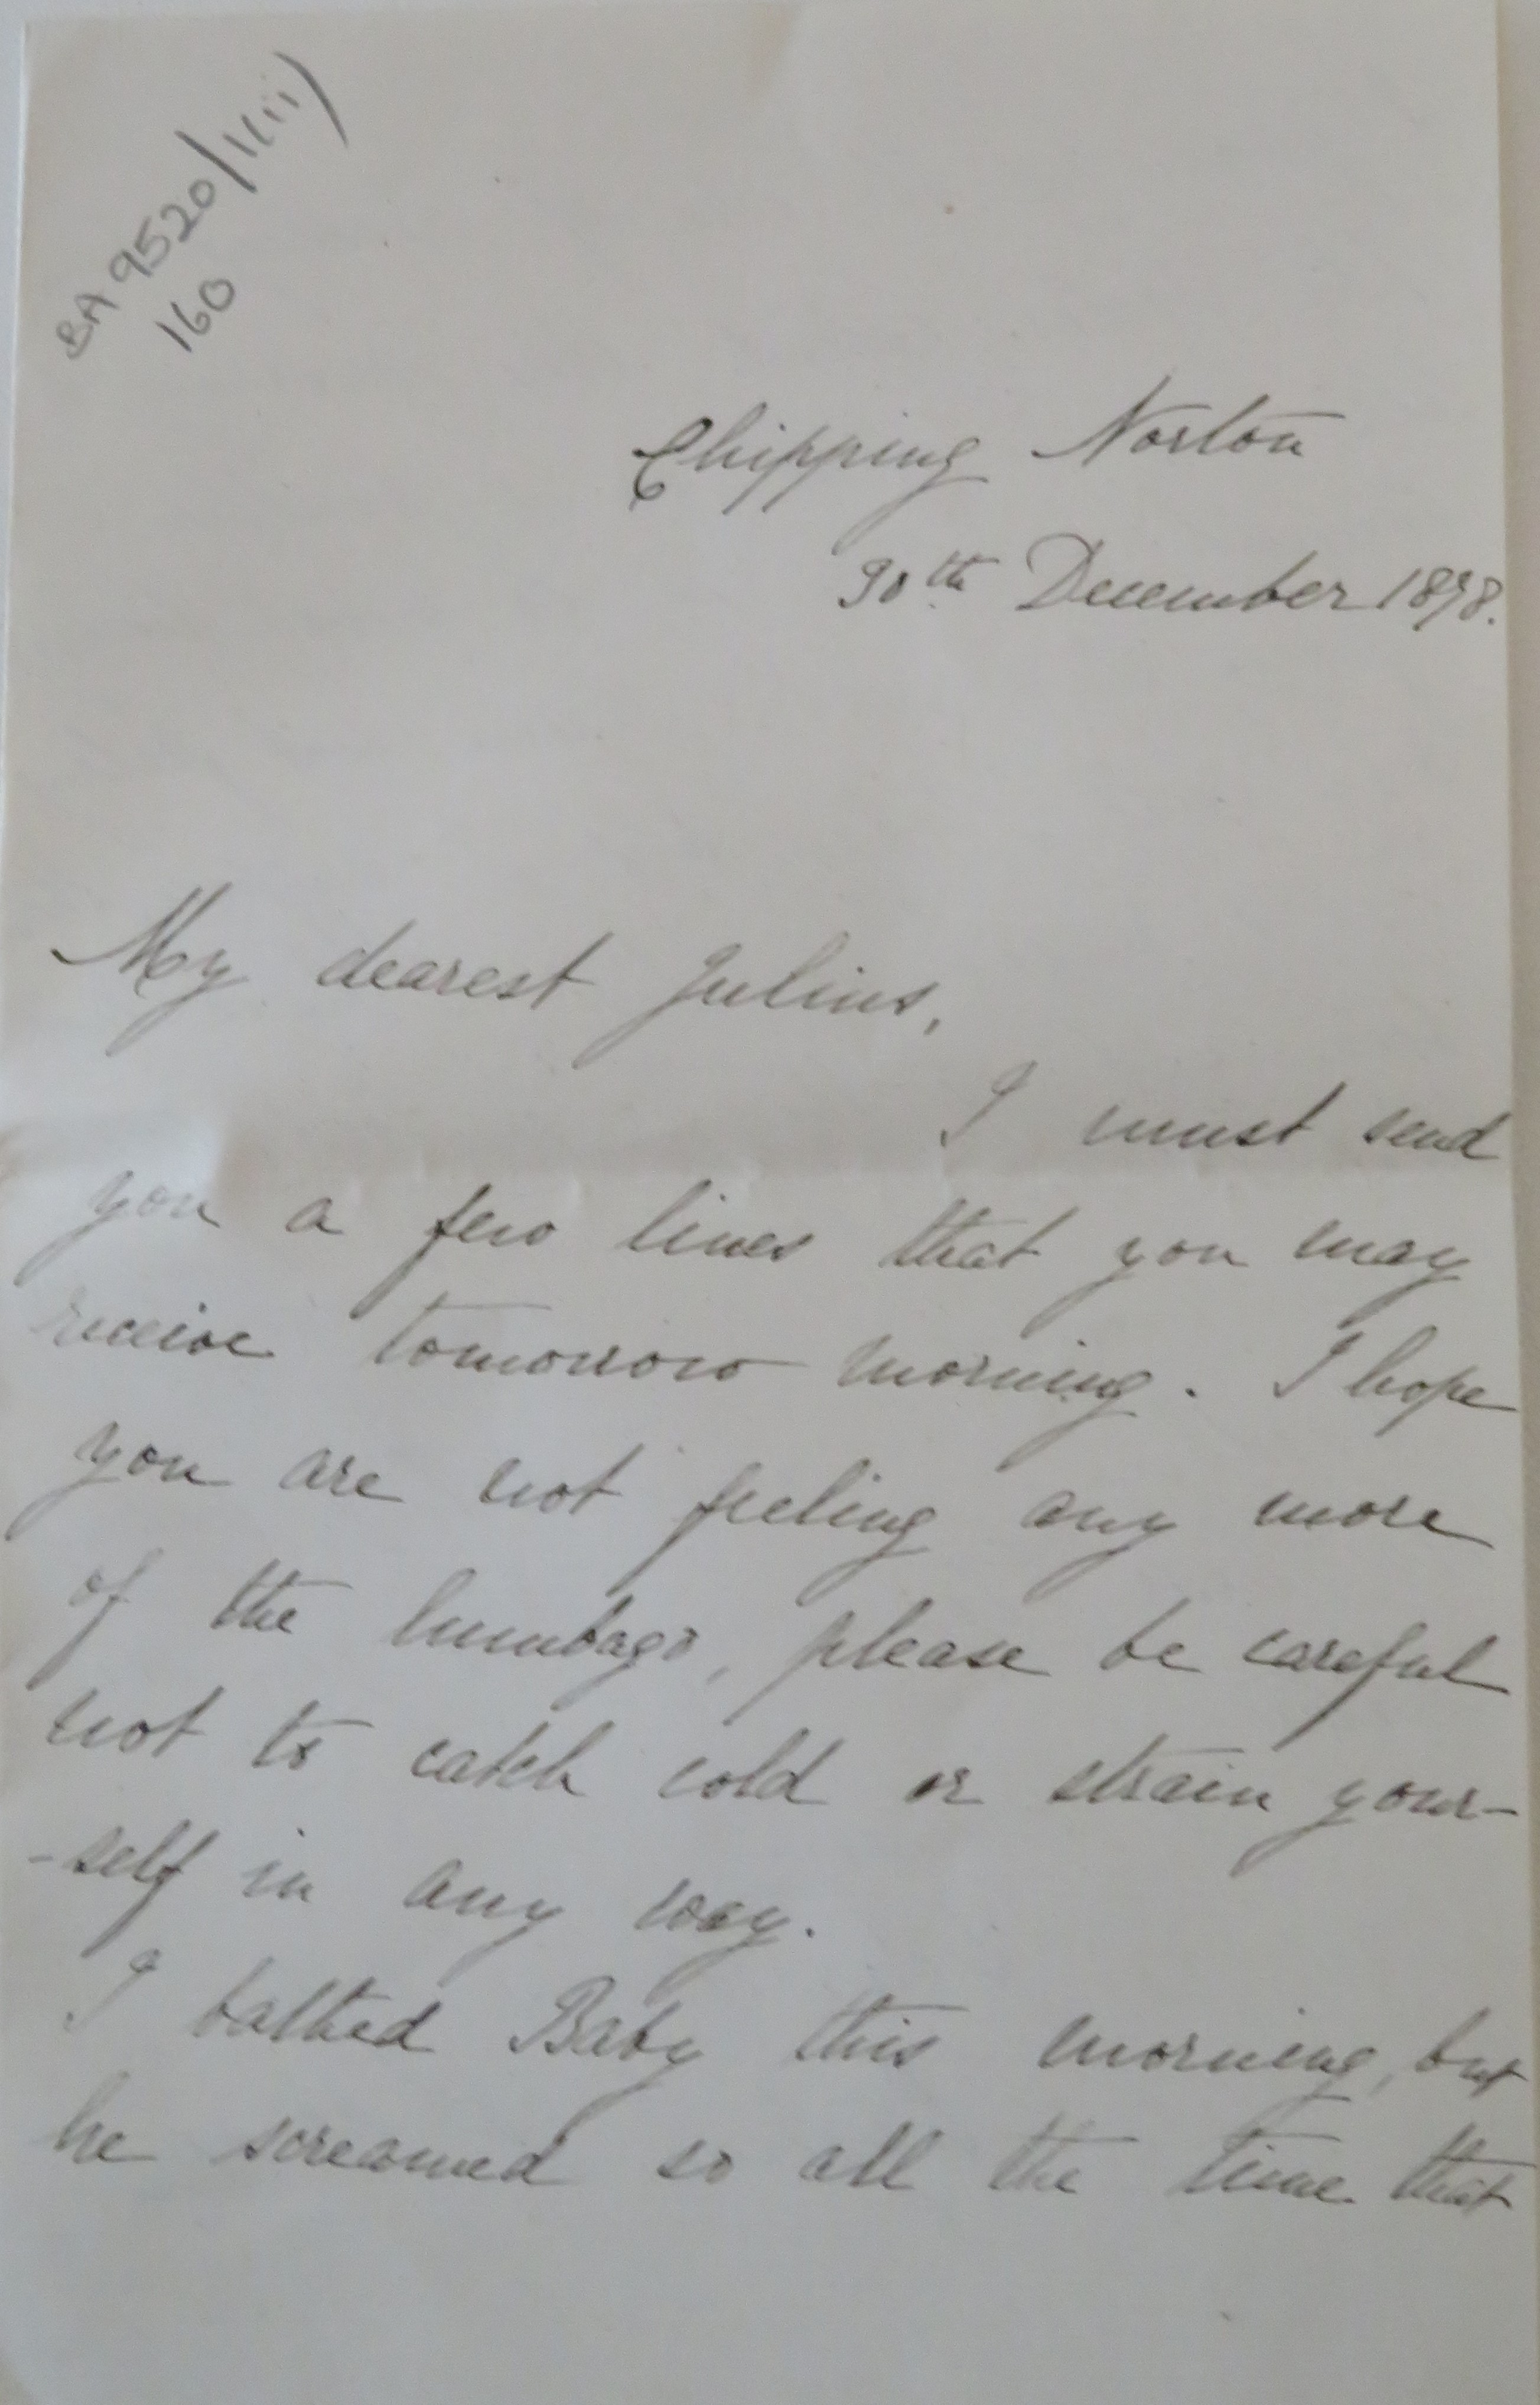 BA 9520/1(iii)
160
Chipping Norton
30th December 1898.
My dearest Julius,
I must send
you a few lines that you may
receive tomorrow morning. I hope
you are not feeling any more
of the lumbago, please be careful
not to catch cold or strain your-
-self in any way.
I bathed Baby this morning, but
he screamed so all the time that